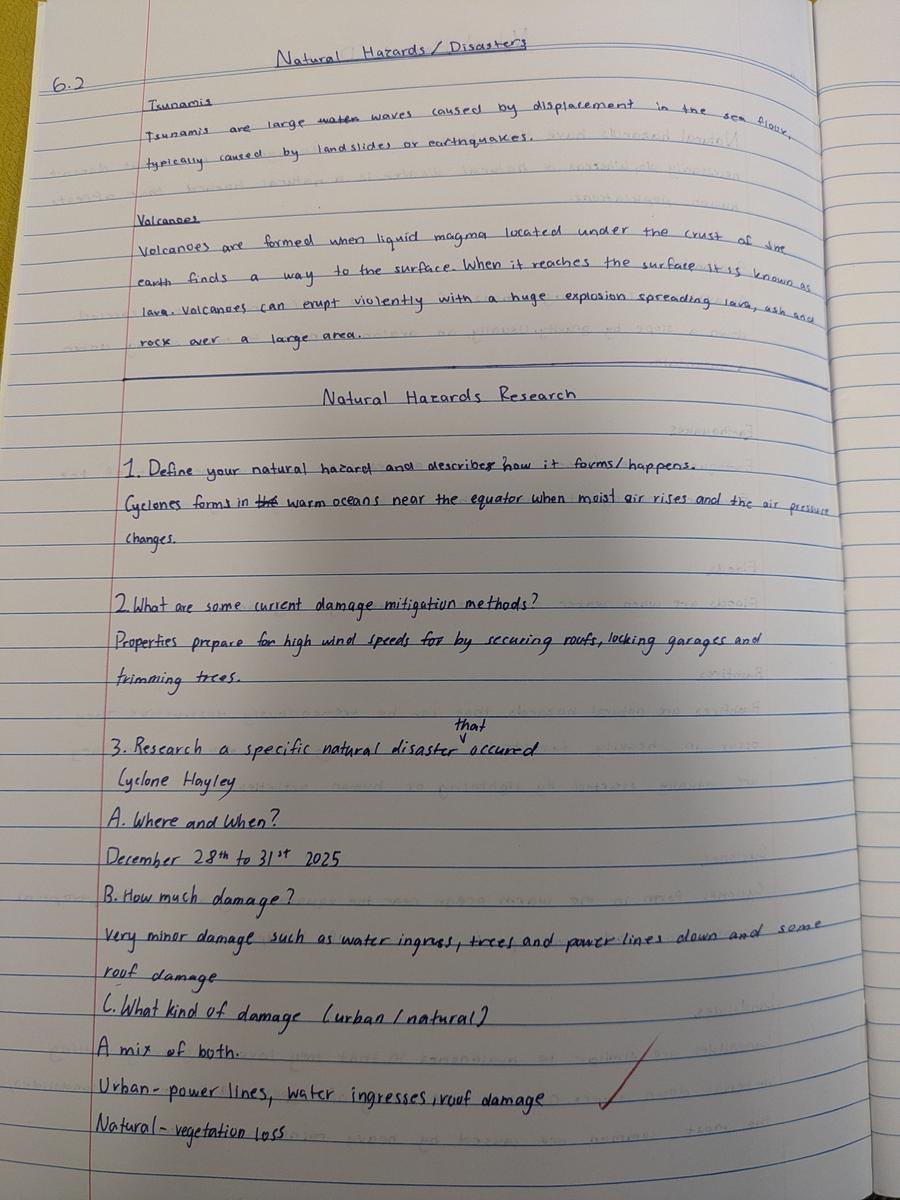 Natural Hazards/Disasters
6.2
Tsunamis
Tsunamis are large water waves caused by displacement in the sea floor,
typically caused by landslides or earthquakes.
Volcanoes
Volcanoes are formed when liquid magma located under the crust of the
earth finds a way to the surface. When it reaches the surface it is known as
lava. Volcanoes can erupt violently with a huge explosion spreading lava, ash and
rock over a large area.
Natural Hazards Research
1. Define your natural hazard and describes how it forms/happens.
Cyclones forms in the warm oceans near the equator when moist air rises and the air pressure
changes.
2. What are some current damage mitigation methods?
Properties prepare for high wind speeds for by securing roofs, locking garages and
trimming trees.
3. Research a specific natural disaster that occured
Cyclone Hayley
A. Where and When?
December 28th to 31st 2025
B. How much damage?
Very minor damage such as water ingress, trees and power lines down and some
roof damage
C. What kind of damage (urban/natural)
A mix of both.
Urban- power lines, water ingresses, roof damage
Natural- vegetation loss